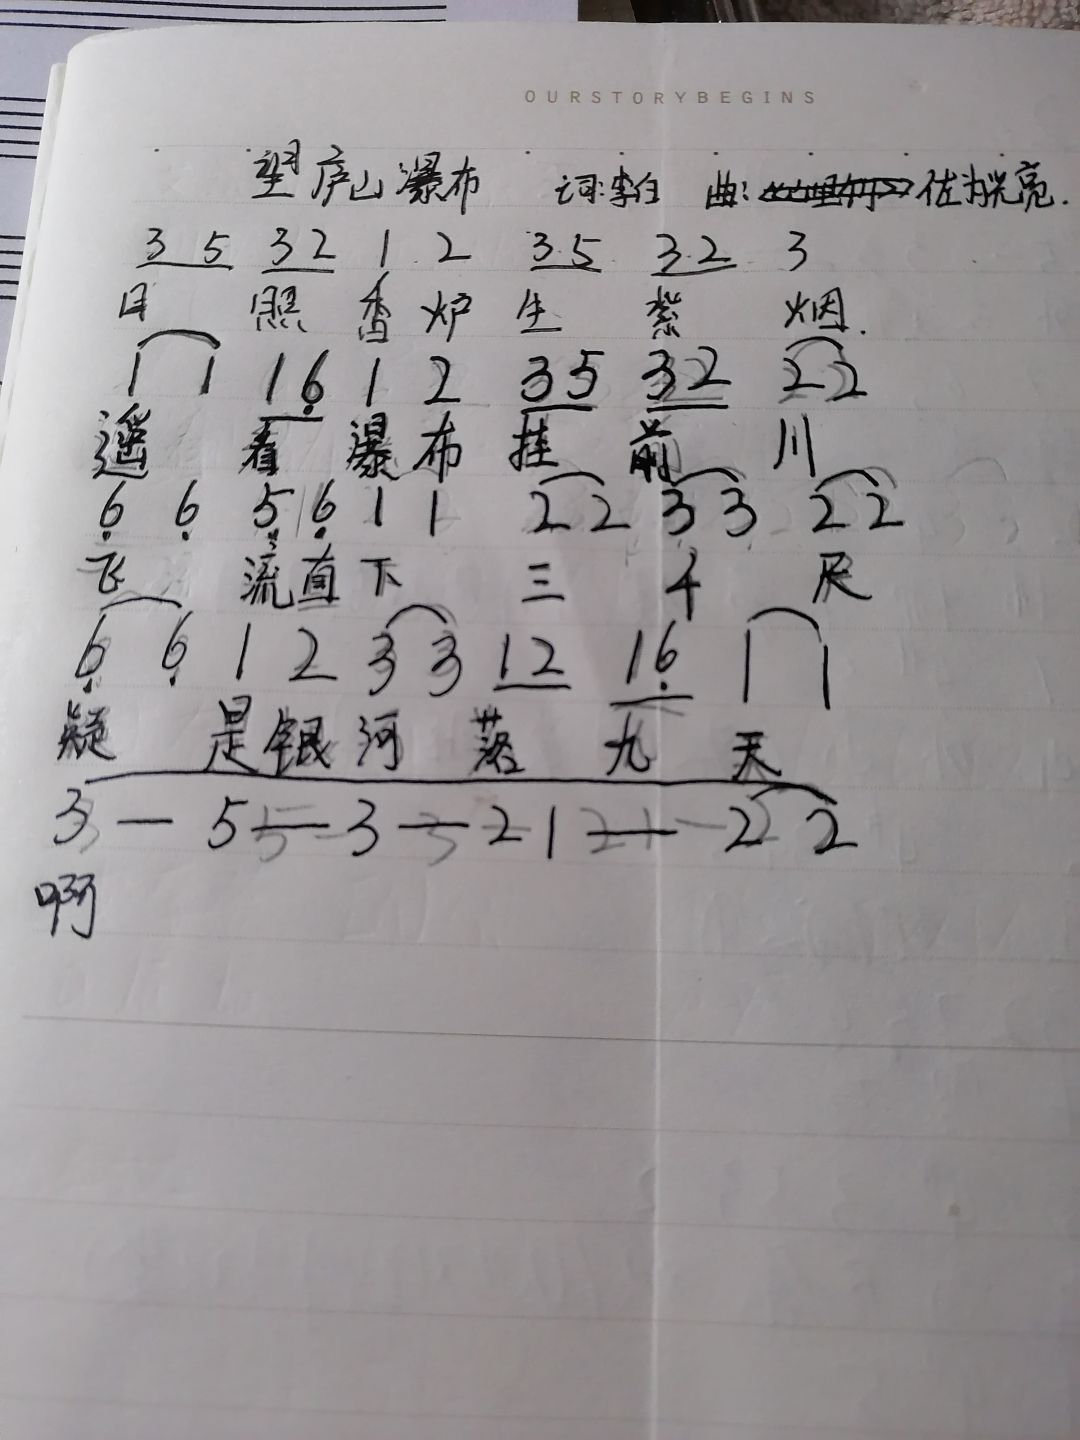 OURSTORYBEGINS
望庐山瀑布 词:李白 曲:
3 5 3 2 1 2 3 5 3 2 3
日 照 香 炉 生 紫 烟.
1 1 1 6 1 2 3 5 3 2 2 2
遥 看 瀑 布 挂 前 川
6 6 5 6 1 1 2 2 3 3 2 2
飞 流 直 下 三 千 尺
6 6 1 2 3 3 1 2 1 6 1 1
疑 是 银 河 落 九 天
3 — 5 — 3 — 2 1 — 2 2
啊